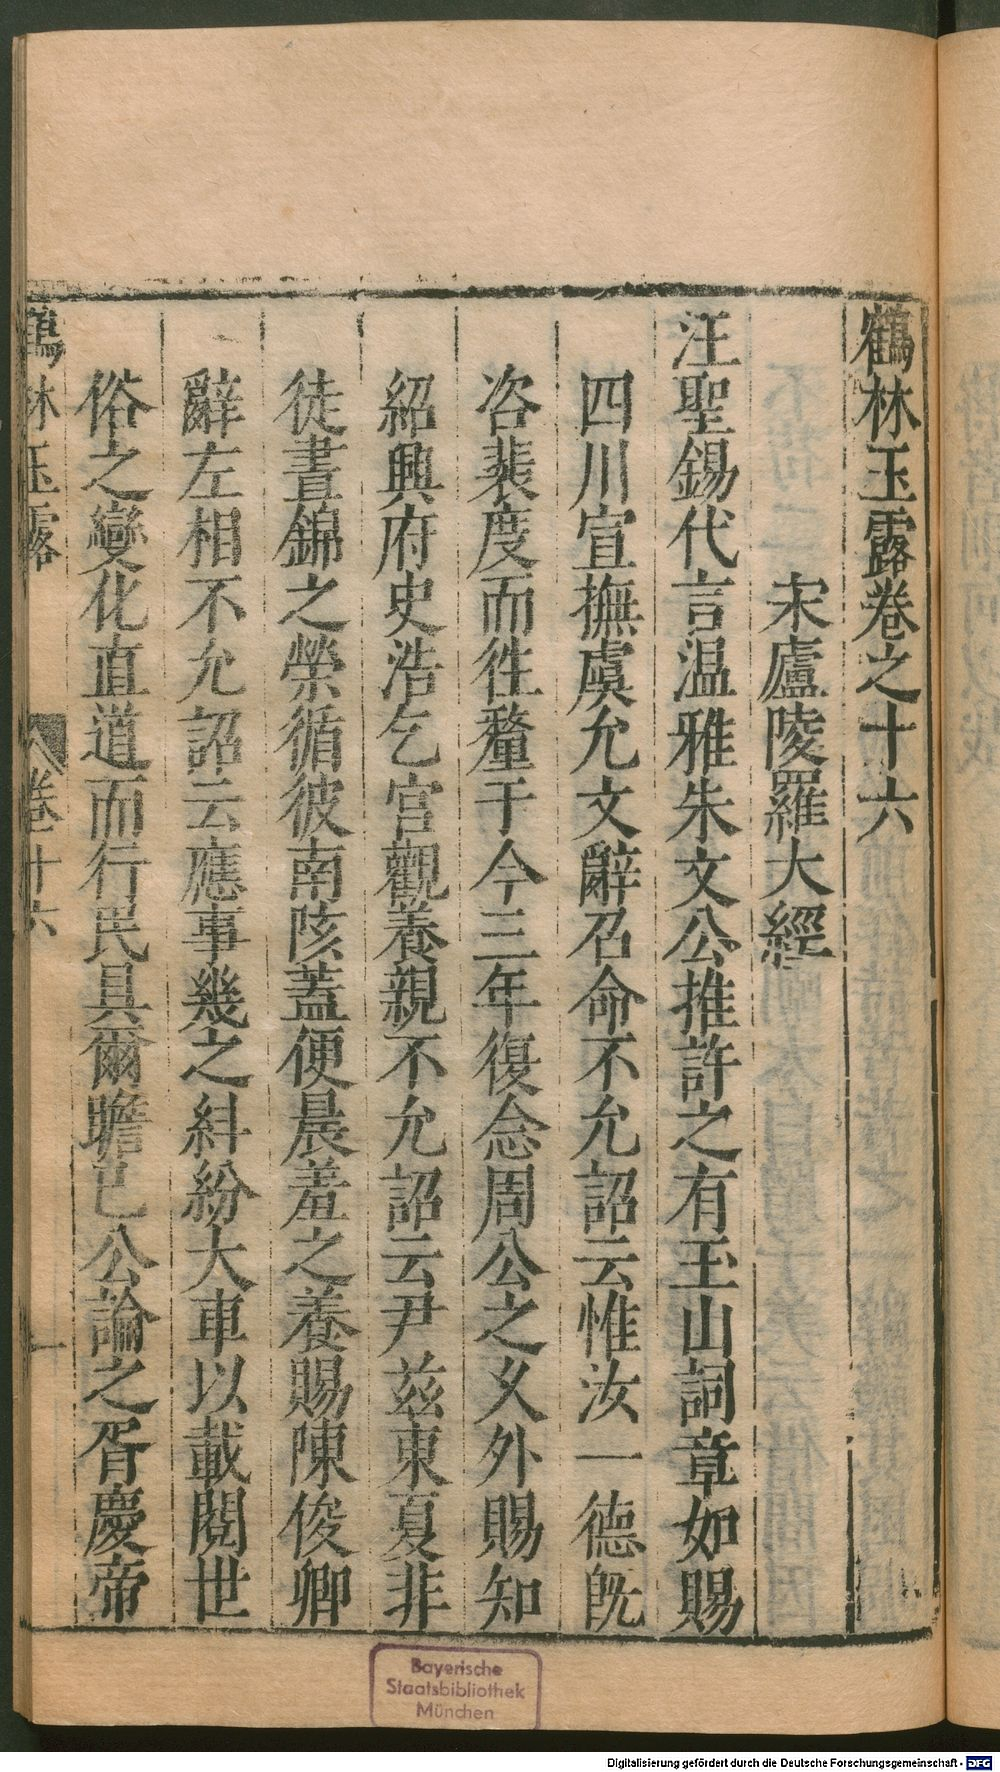 鶴林玉露卷之十六
宋廬陵羅大經
汪聖錫代言温雅朱文公推許之有玉山詞章如賜
四川宣撫虞允文辭召命不允詔云惟汝一德旣
咨裴度而徃釐于今三年復念周公之乆外賜知
紹興府史浩乞宫觀養親不允詔云尹兹東夏非
徒晝錦之榮循彼南陔蓋便晨羞之養賜陳俊卿
辭左相不允詔云應事幾之糾紛大車以載閱世
俗之變化直道而行民具爾瞻已公論之胥慶帝
鶴林玉露 卷十六 一
Bayerische
Staatsbibliothek
München
Digitalisierung gefördert durch die Deutsche Forschungsgemeinschaft - DFG